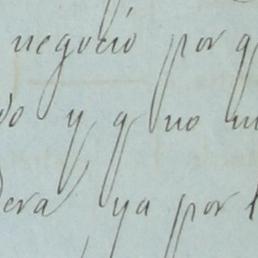 negocio por q
do y q no
dera ya por l